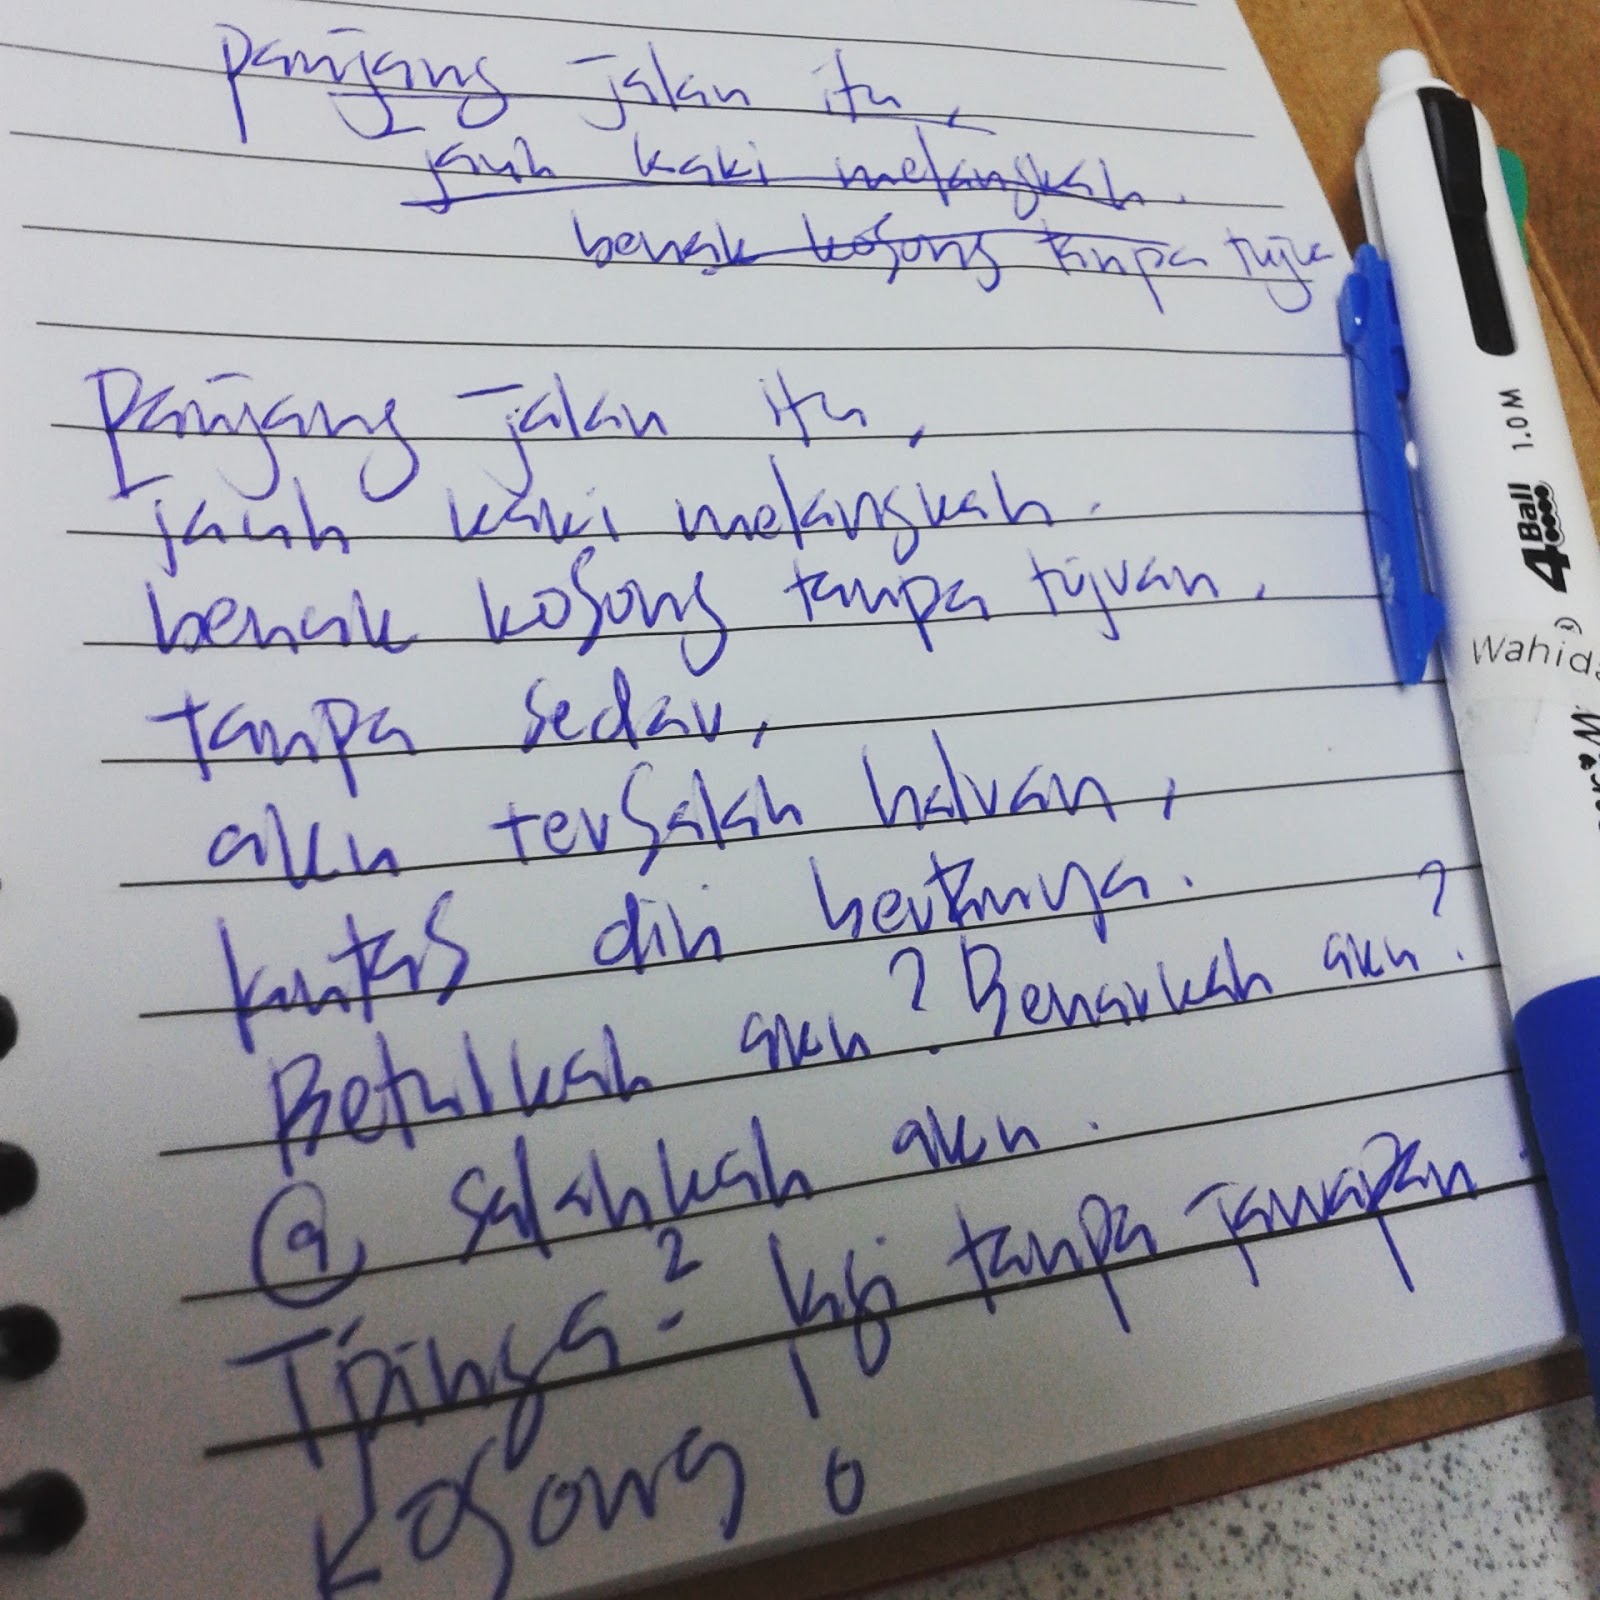 panjang jalan itu,
jauh kaki melangkah.
benak kosong tanpa tujua
Panjang jalan itu,
jauh kaki melangkah.
benak kosong tanpa tujuan,
tanpa sedar,
aku tersalah haluan,
kutas diri bertanya.
Betulkah aku? Benarkah aku?
@ salahkah aku.
T'pinga²? lagi tanpa jawapan.
Kosong!
1.0 M
4Ball
Wahid